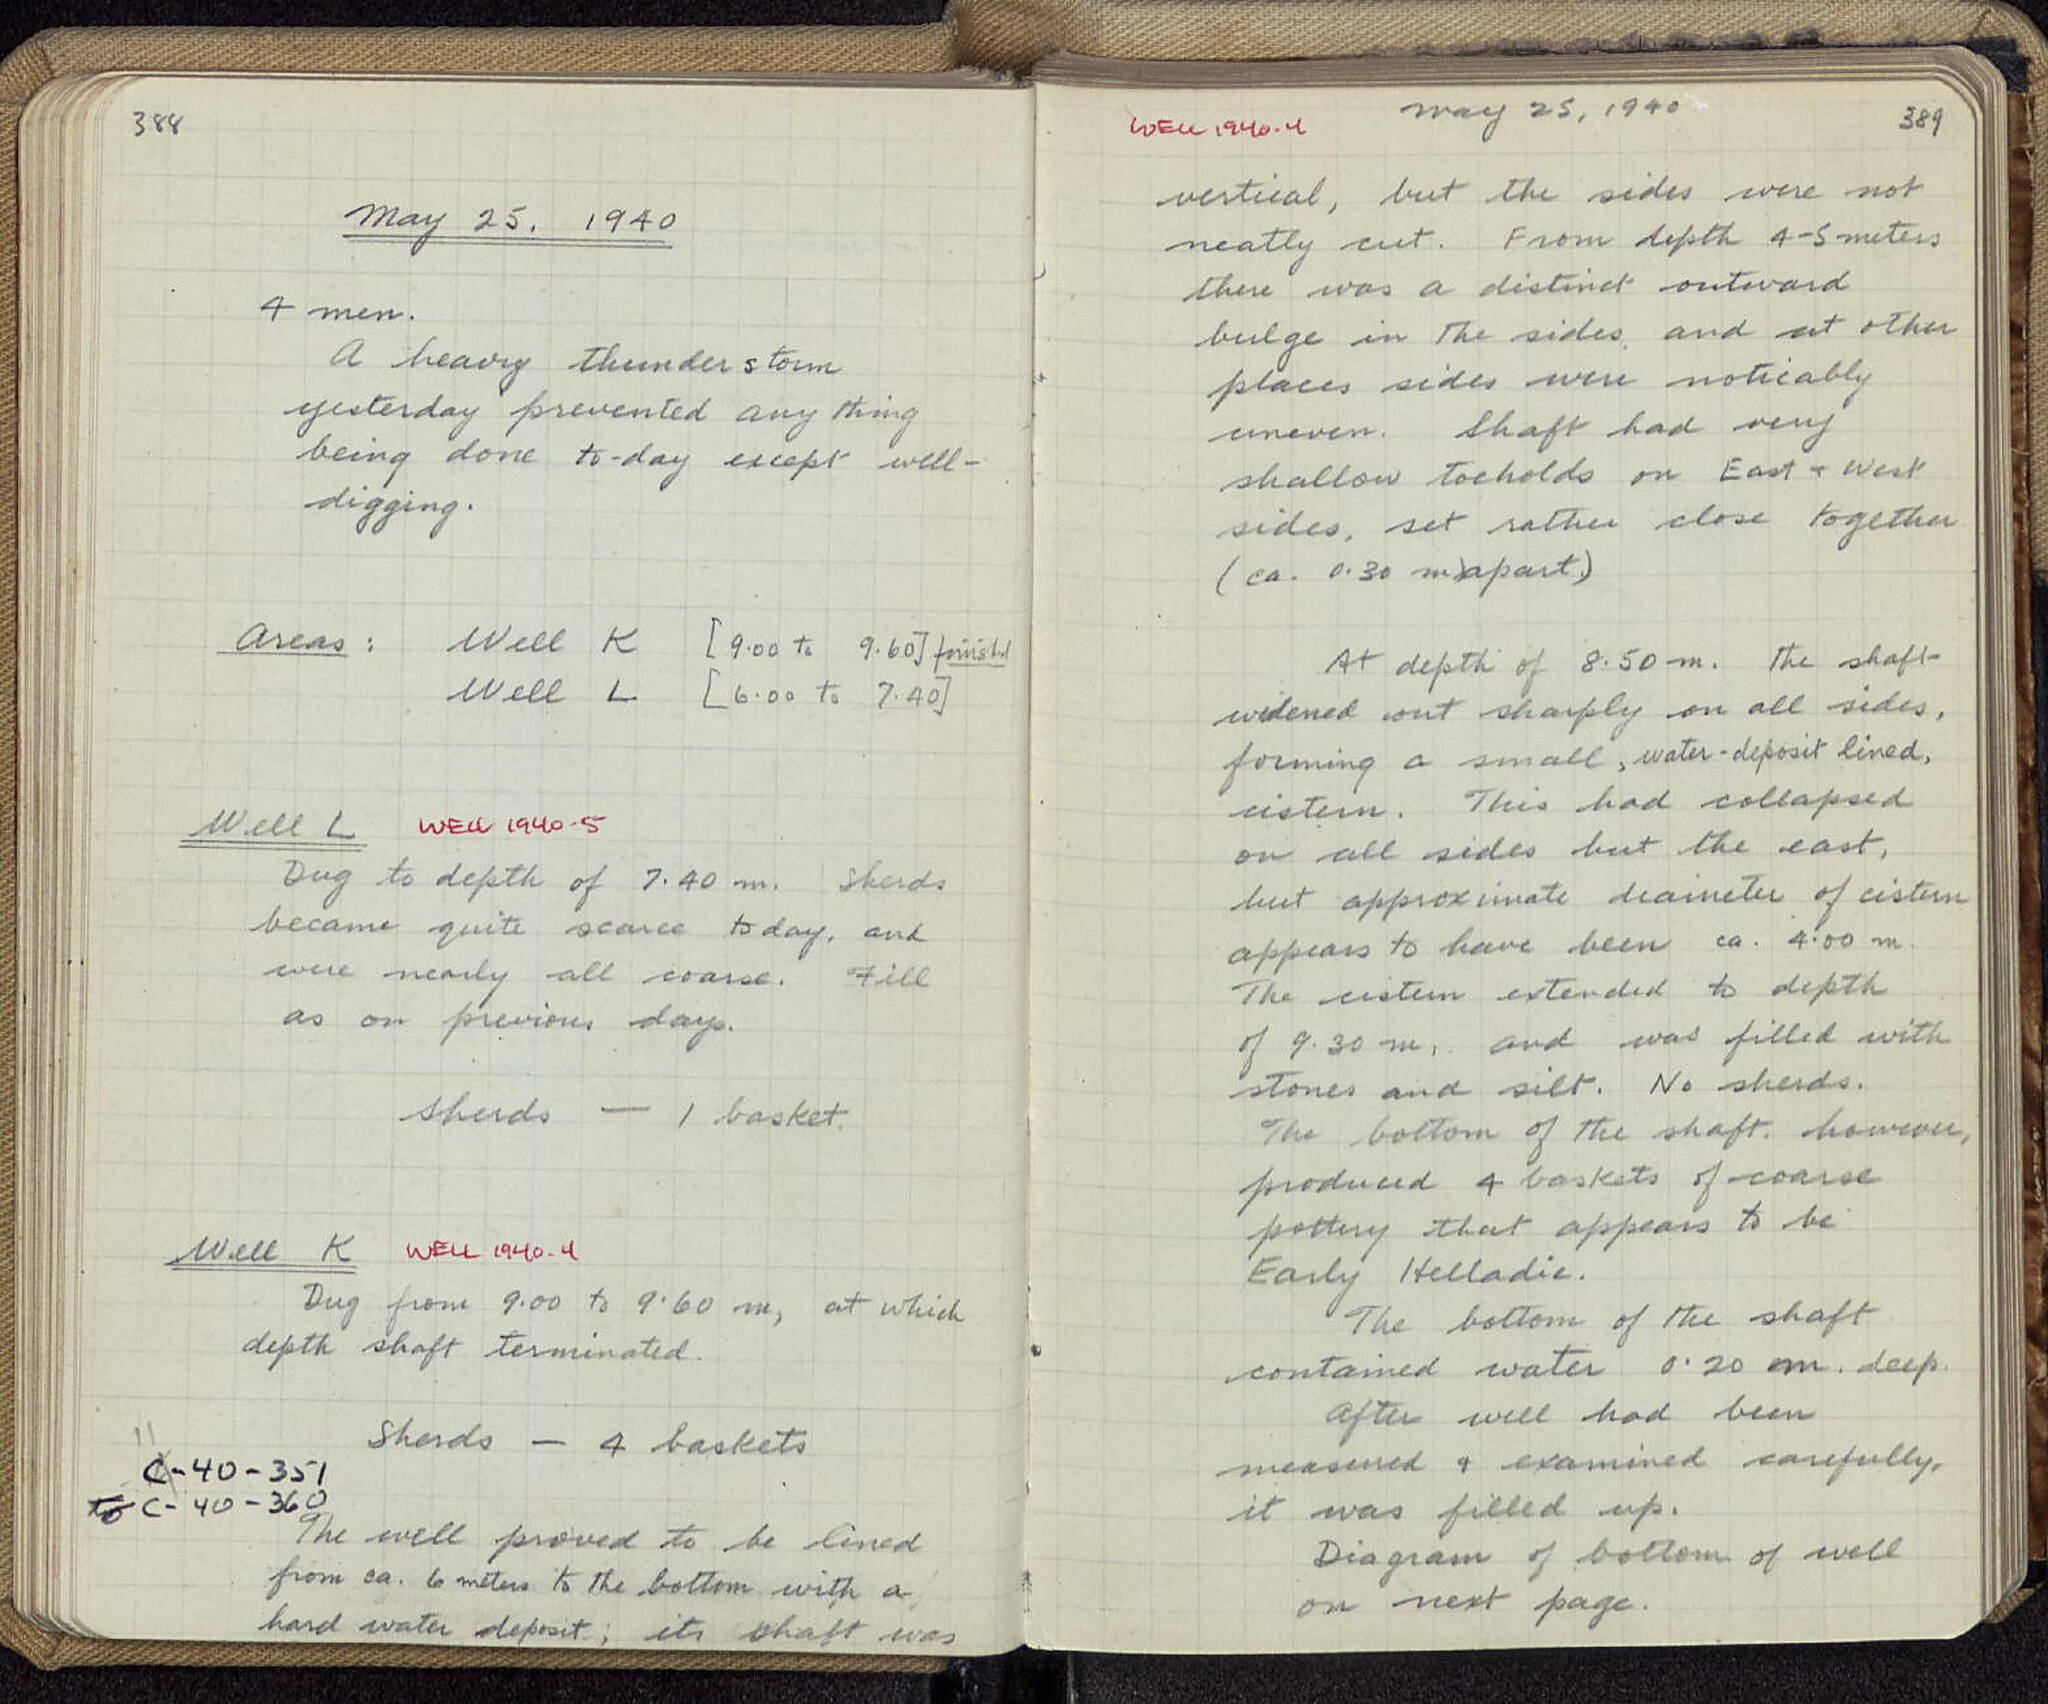 388
May 25, 1940
4 men.
A heavy thunderstorm
yesterday prevented anything
being done to-day except well-
digging.
Areas: Well K [9.00 to 9.60] finished
Well L [6.00 to 7.40]
Well L WELL 1940-5
Dug to depth of 7.40 m. Sherds
became quite scarce today, and
were nearly all coarse. Fill
as on previous days.
Sherds — 1 basket.
Well K WELL 1940-4
Dug from 9.00 to 9.60 m, at which
depth shaft terminated.
Sherds — 4 baskets
C-40-351
to C-40-360
The well proved to be lined
from ca. 6 meters to the bottom with a
hard water deposit; its shaft was
WELL 1940-4 May 25, 1940 389
vertical, but the sides were not
neatly cut. From depth 4-5 meters
there was a distinct outward
bulge in the sides, and at other
places sides were noticably
uneven. Shaft had very
shallow toeholds on East & West
sides, set rather close together
(ca. 0.30 m) apart.)
At depth of 8.50 m. the shaft
widened out sharply on all sides,
forming a small, water-deposit lined,
cistern. This had collapsed
on all sides but the east,
but approximate diameter of cistern
appears to have been ca. 4.00 m.
The cistern extended to depth
of 9.30 m, and was filled with
stones and silt. No sherds.
The bottom of the shaft, however,
produced 4 baskets of coarse
pottery that appears to be
Early Helladic.
The bottom of the shaft
contained water 0.20 m. deep.
After well had been
measured & examined carefully,
it was filled up.
Diagram of bottom of well
on next page.